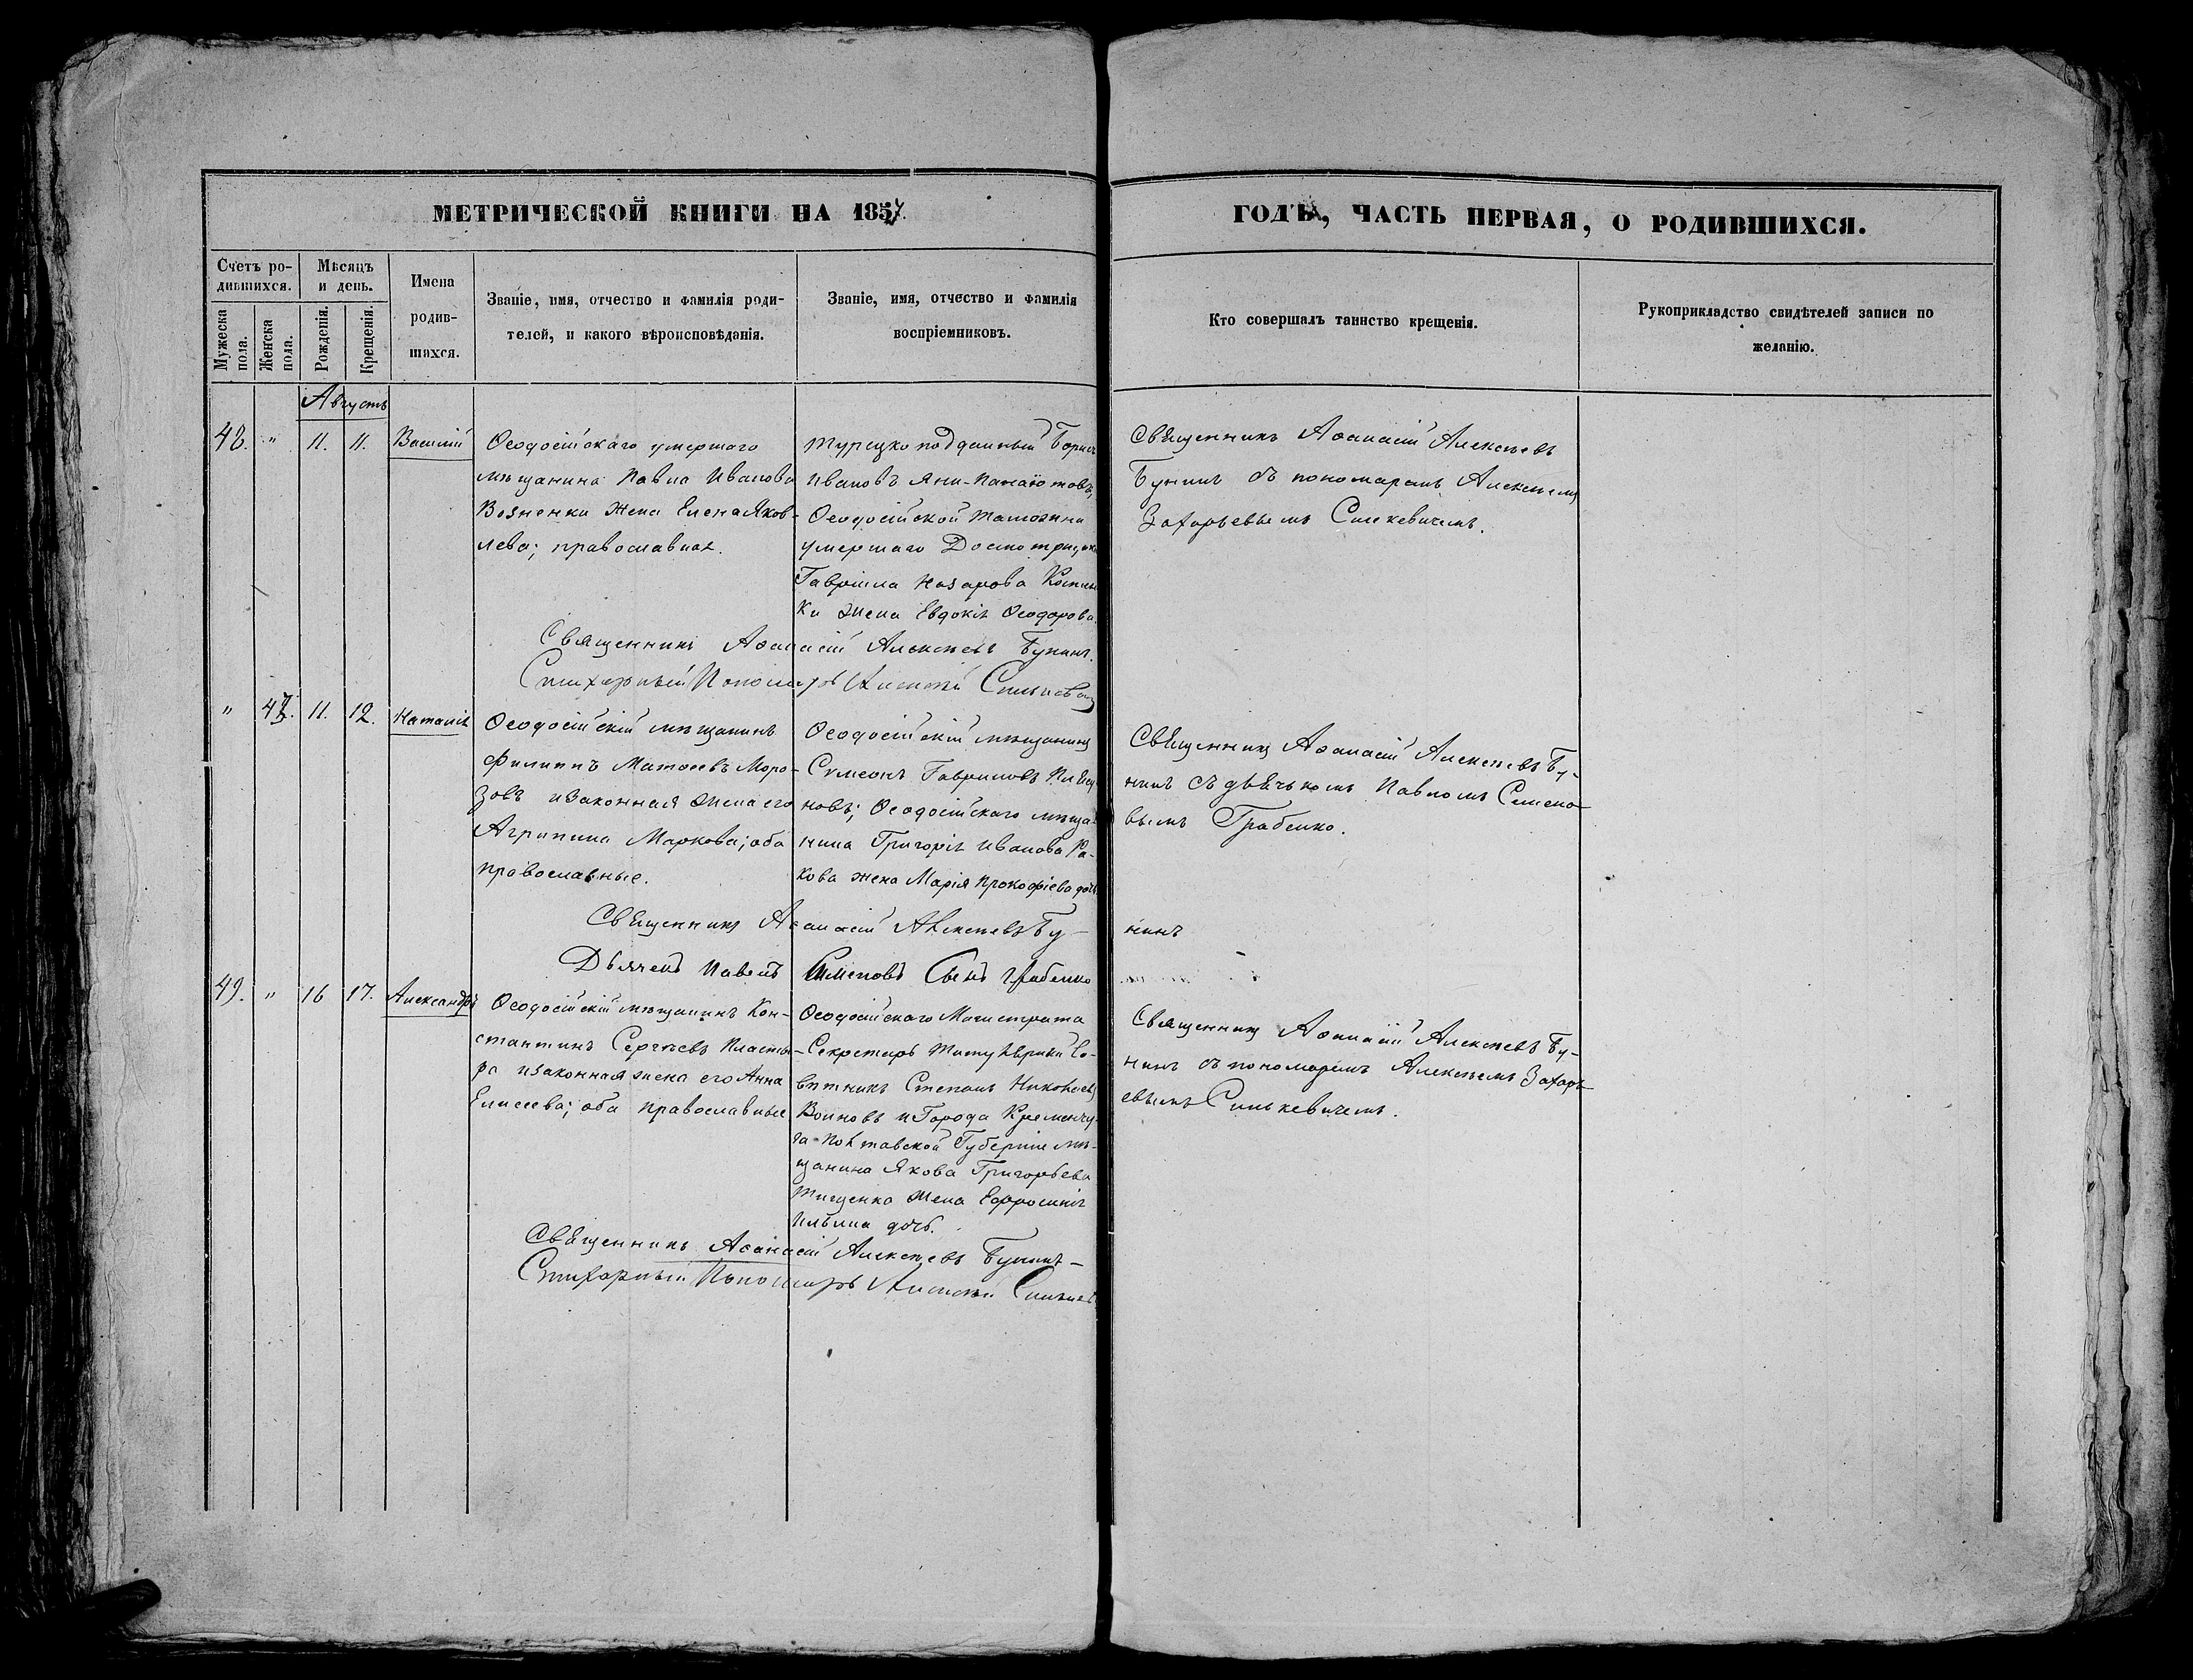 МЕТРИЧЕСКОЙ КНИГИ НА 1857.
ГОДЪ, ЧАСТЬ ПЕРВАЯ, О РОДИВШИХСЯ.
Счетъ ро-
дившихся.
Мѣсяцъ
и день.
Мужеска
пола.
Женска
пола.
Рожденія.
Крещенія.
Имена
родив-
шихся.
Званіе, имя, отчество и фамилія роди-
телей, и какого вѣроисповѣданія.
Званіе, имя, отчество и фамилія
воспріемниковъ.
Кто совершалъ таинство крещенія.
Рукоприкладство свидѣтелей записи по
желанію.
Августъ
48. " 11. 11. Василій
Ѳеодосійскаго умершаго
мѣщанина Павла Иванова
Возненки жена Елена Яков-
лева; православная.
турецко подданный Борисъ
Ивановъ Яни-Панаіотовъ,
Ѳеодосійской таможни
умершаго
Гавріила Назарова
ки жена Евдокія Ѳеодорова.
Священникъ Аѳанасій Алексѣевъ
Бунинъ съ пономаремъ Алексѣемъ
Захарьевымъ Синкевичемъ.
Священникъ Аѳанасій Алексѣевъ Бунинъ.
Стихарный Пономарь Алексѣй
" 47. 11. 12. Наталія
Ѳеодосійскій мѣщанинъ
Филиппъ Матѳеевъ Моро-
зовъ и законная жена его
Агрипина Маркова; оба
православные.
Ѳеодосійскій мѣщанинъ
Сумеонъ Гавриловъ
новъ; Ѳеодосійскаго мѣща-
нина Григорія Иванова Ра-
кова жена Марія Прокофіева дочь
Священникъ Аѳанасій Алексѣевъ Бу-
нинъ съ дьячькомъ Павломъ Семено-
вымъ Грабенко.
Священникъ Аѳанасій Алексѣевъ Бу-
нинъ
Дьячекъ Павелъ Симеоновъ Сынъ Грабенко
49. " 16 17. Александръ
Ѳеодосійскій мѣщанинъ Кон-
стантинъ Сергѣевъ
ра и законная жена его Анна
Елисеева; оба православные
Ѳеодосійскаго Магистрата
Секретарь Титулярный Со-
вѣтникъ Степанъ Николаевъ
Войновъ и Города Кременчу-
га Полтавской Губерніи мѣ-
щанина Якова Григорьева
Тищенка жена Ефросинія
Ильина дочь.
Священникъ Аѳанасій Алексѣевъ Бу-
нинъ съ пономаремъ Алексѣемъ Захарь-
евымъ Синькевичемъ.
Священникъ Аѳанасій Алексѣевъ Бунинъ
Стихарный Пономарь Алексѣй